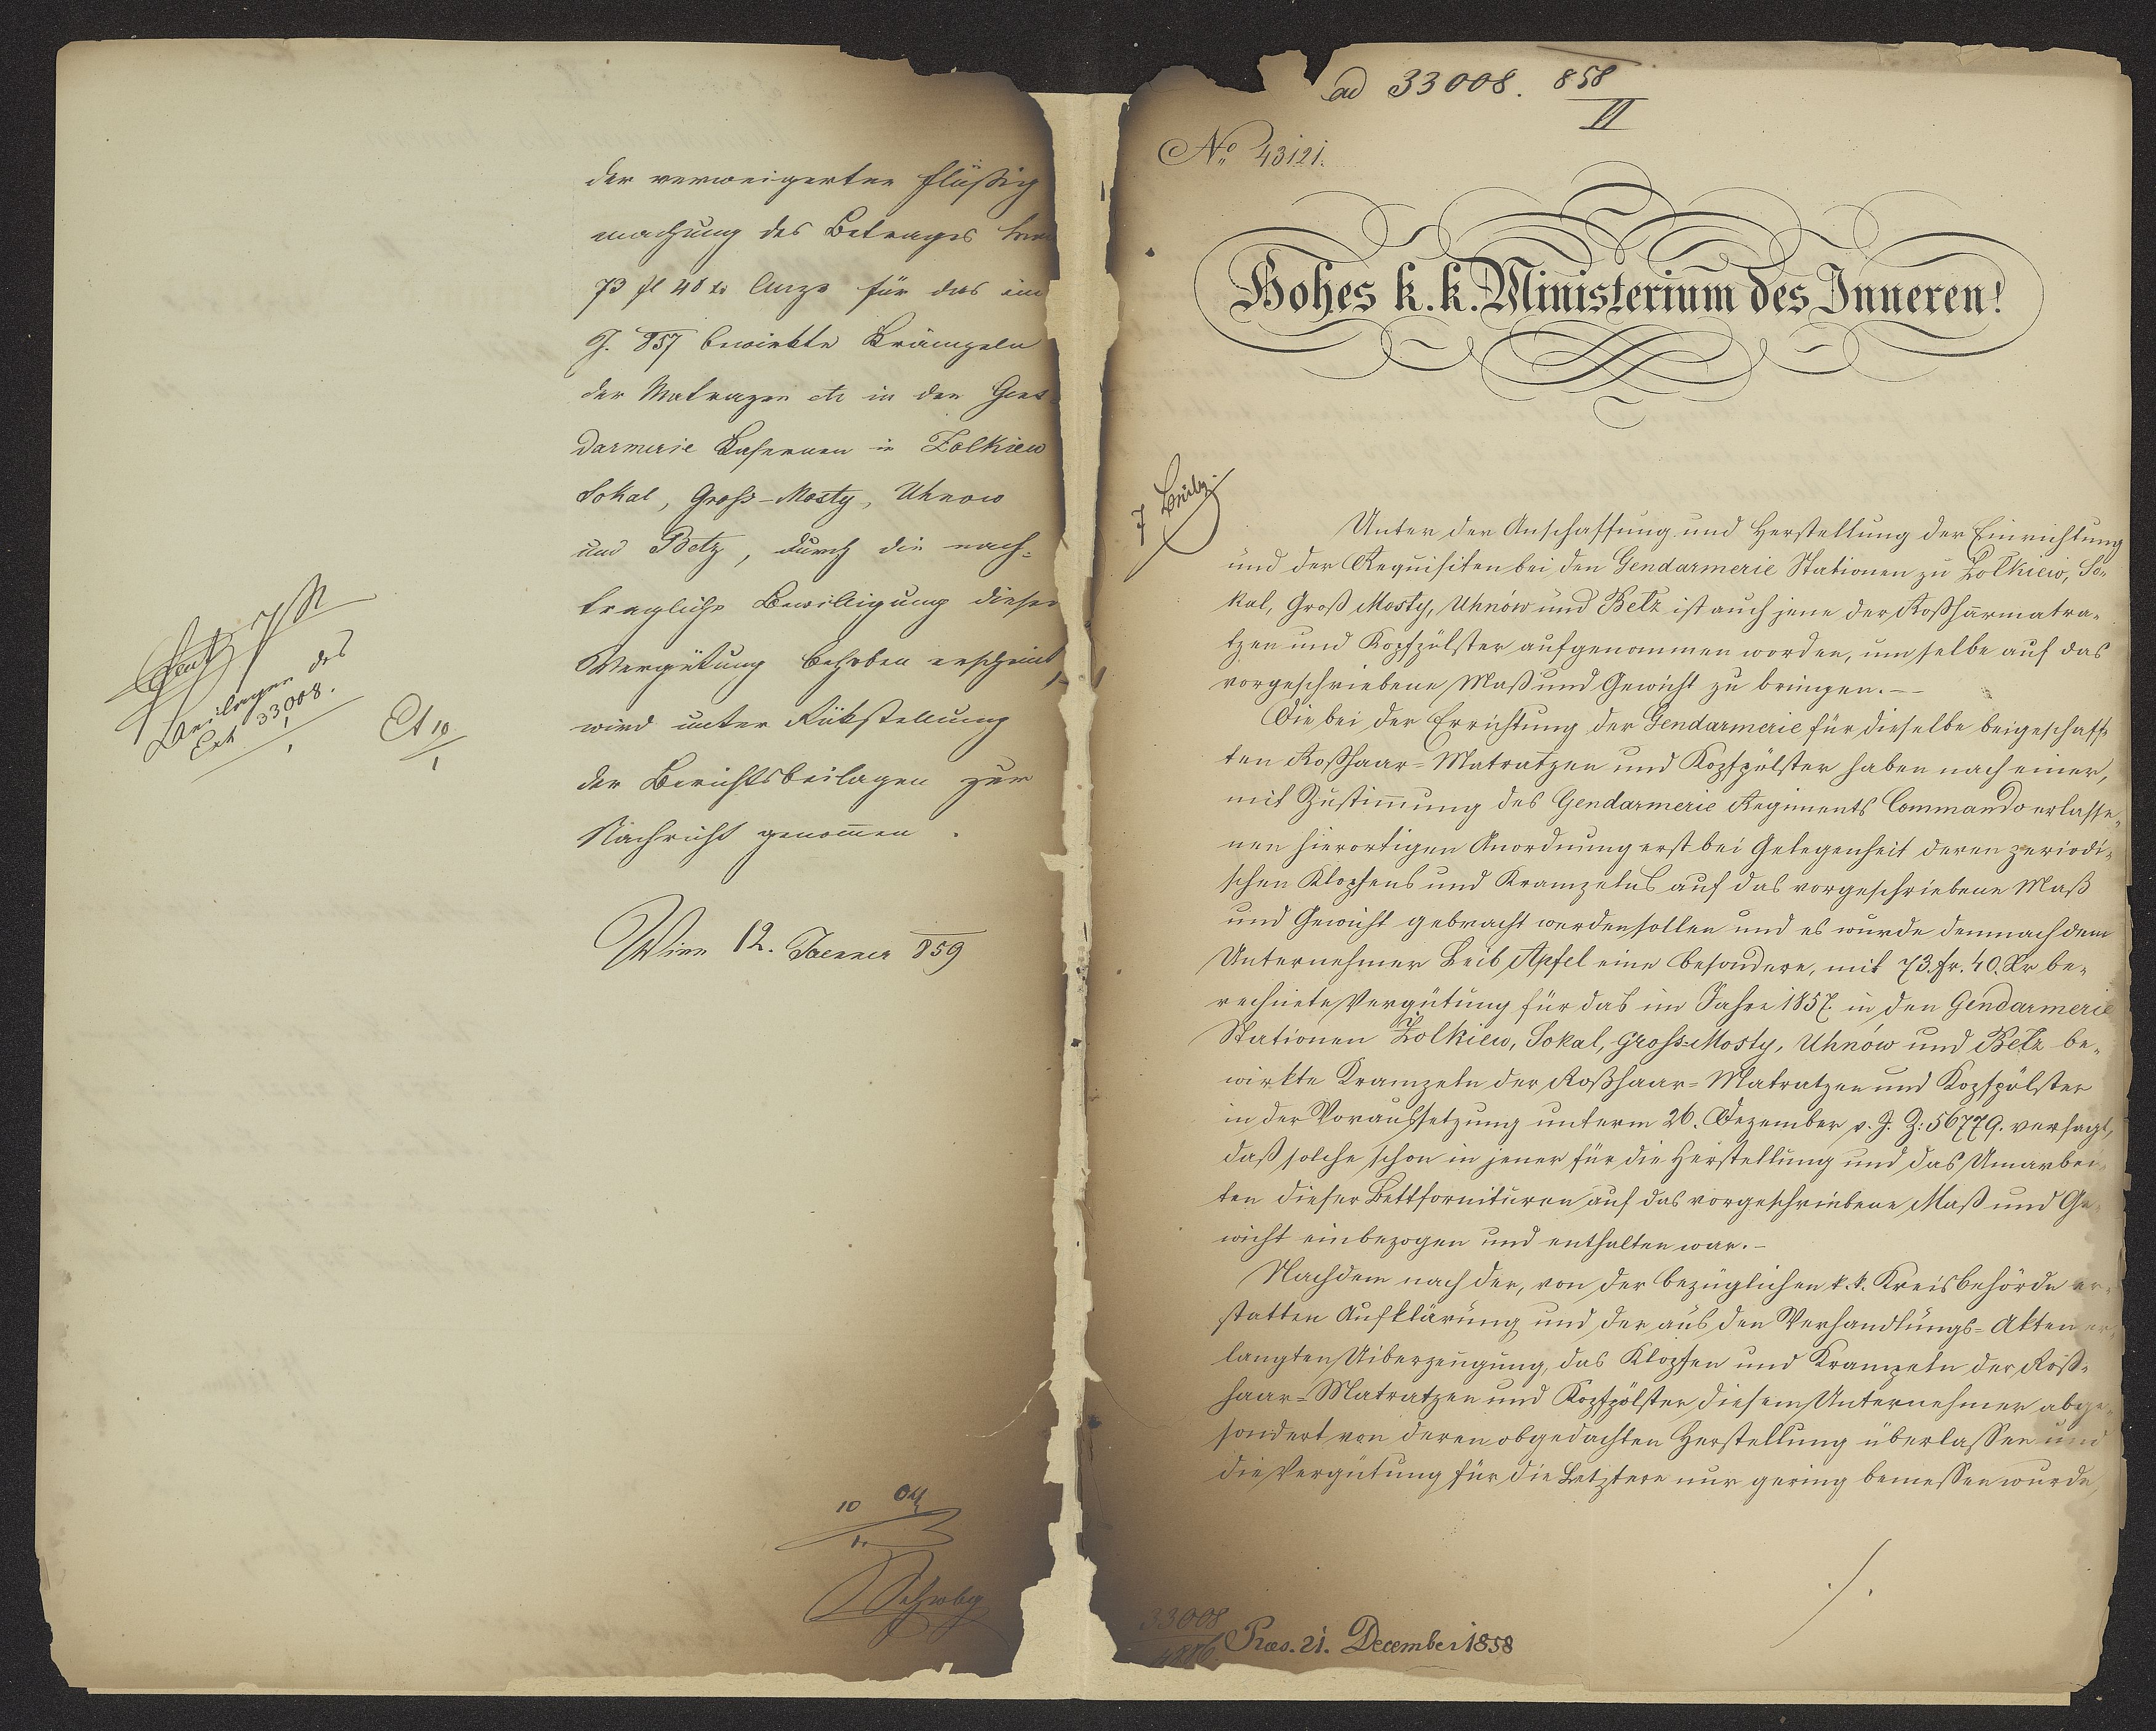 der verweigerten Flüßig
machung des Betrages
73 fl 40 x für das im
J. 857 bewirkte Krämpeln
der Matrazen etc in den Gens
darmerie Kasernen in Zolkiew
Sokal, Groß-Mosty, Uhnow
und Belz, durch die nach-
trägliche Bewilligung dieser
Vergütung behoben erscheint,
wird unter Rükstellung
der Berichtsbeilagen zur
Nachricht genom̄en.
Wien 12. Jaenner 859
Beilagen des
Exh 33008.
10
ad 33008. 858
VI
No. 43121.
Hohes k. k. Ministerium des Inneren!
7 Beilg.
Unter der Anschaffung und Herstellung der Einrichtung
und der Requisiten bei den Gendarmerie Stationen zu Zolkiew, So-
kal, Groß Mosty, Uhnów und Belz ist auch jene der Roßharmatra-
tzen und Kopfpölster aufgenommen worden, um selbe auf das
vorgeschriebene Maß und Gewicht zu bringen. –
Die bei der Errichtung der Gendarmerie für dieselbe beigeschaff-
ten Roßhaar-Matratzen und Kopfpölster haben nach einer,
mit Zustim̄ung des Gendarmerie Regiments Commando erlasse-
nen hierortigen Anordnung erst bei Gelegenheit deren periodi-
schen Klopfens und Krampelns auf das vorgeschriebene Maß
und Gewicht gebracht werden sollen und es wurde demnach dem
Unternehmer Leib Apfel eine besondere, mit 73. fr. 40. Xr be-
rechnete Vergütung für das im Jahre 1857. in den Gendarmerie
Stationen Zolkiew, Sokal, Gross-Mosty, Uhnów und Belz be-
wirkte Krampeln der Roßhaar-Matratzen und Kopfpölster
in der Voraussetzung unterm 26. Dezember v. J. Z: 56779. versagt,
daß solche schon in jener für die Herstellung und das Umarbei-
ten dieser Bettfornituren auf das vorgeschriebene Maß und Ge-
wicht einbezogen und enthalten war. –
Nachdem nach der, von der bezüglichen k. k. Kreisbehörde er-
statten Aufklärung und der aus den Verhandlungs-Akten er-
langten Uiberzeugung, das Klopfen und Krampeln der Roß-
haar-Matratzen und Kopfpölster diesem Unternehmer abge-
sondert von deren obgedachten Herstellung überlassen und
die Vergütung für die Letztere nur gering bemessen wurde,
./.
33008
Præs. 21. December 1858